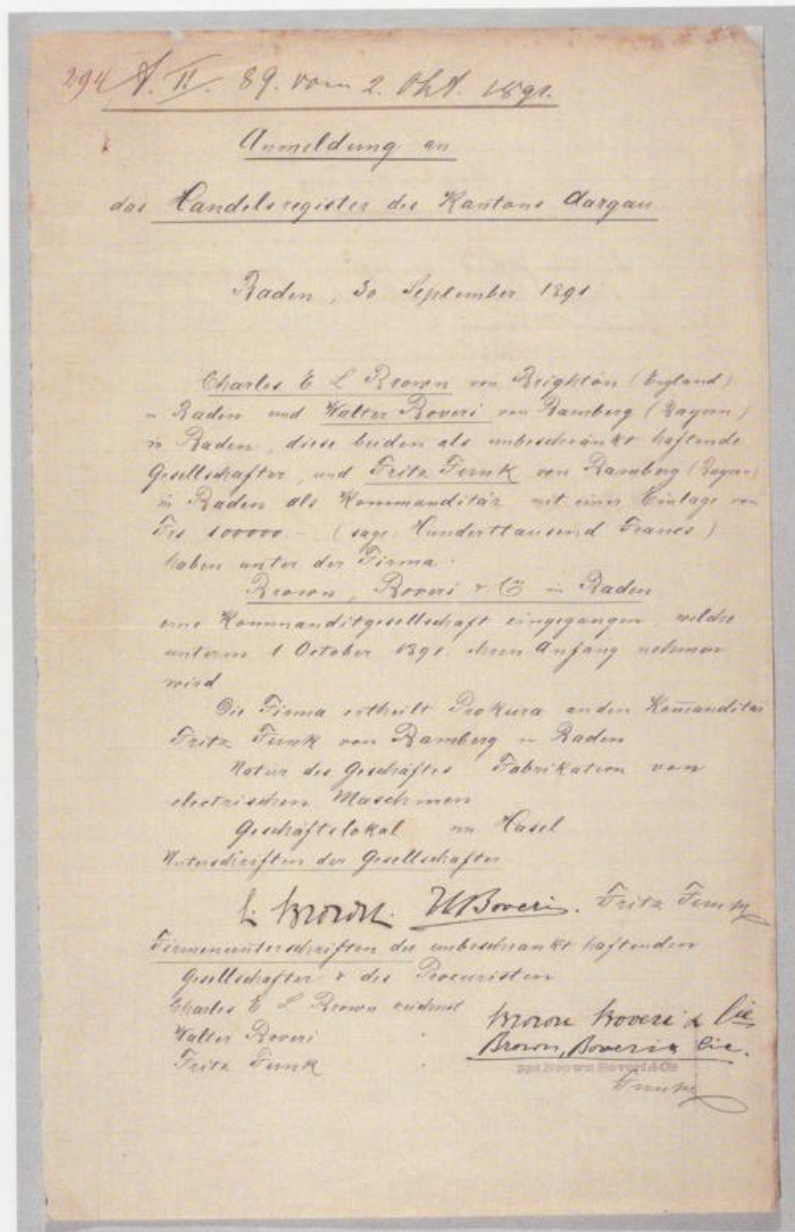 294 A. II. 89. vom 2. Okt. 1891.
Anmeldung an
das Handelsregister des Kantons Aargau
Baden, 30 September 1891
Charles E L Brown von Brighton (England)
in Baden und Walter Boveri von Bamberg (Bayern)
in Baden, diese beiden als unbeschränkt haftende
Gesellschafter, und Fritz Funk von Bamberg (Bayern)
in Baden als Kommanditär mit einer Einlage von
Frs 100000.- (sage: Hunderttausend Francs)
haben unter der Firma:
Brown, Boveri & Co in Baden
eine Kommanditgesellschaft eingegangen, welche
unterm 1 October 1891. ihren Anfang nehmen
wird
Die Firma ertheilt Prokura an den Komanditär
Fritz Funk von Bamberg in Baden
Natur des Geschäftes Fabrikation von
electrischen Maschinen
Geschäftslokal im Hasel
Unterschriften der Gesellschafter
C. Brown. W Boveri. Fritz Funk
Firmenunterschriften der unbeschränkt haftenden
Gesellschafter & des Procuristen
Charles E L Brown zeichnet Brown Boveri & Cie
Walter Boveri " Brown, Boveri & Cie.
Fritz Funk " ppa Brown Boveri & Cie
Funk